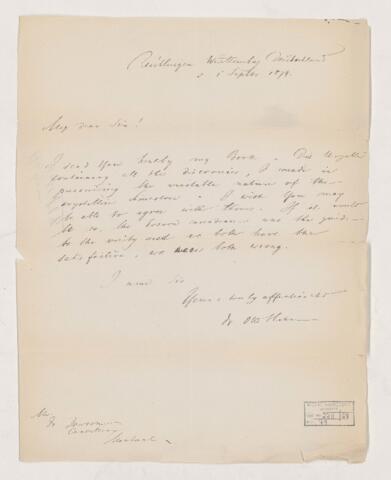 Reutlingen Württemberg Deutschland
5 Septbr 1879.
My dear Sir!
I send You hereby my Book - Die Urzelle
containing all the discoveries, I made in
the vegetable nature of the
limestone. I wish You may
be able to agree with them. If it would
be so, the Eozoon canadense was the guide
to the verity and we both have the
satisfaction, or we were both wrong.
I am Sir
Yours truly affectionate
Dr Otto Hahn
Mr
Dr Dawson
Montreal